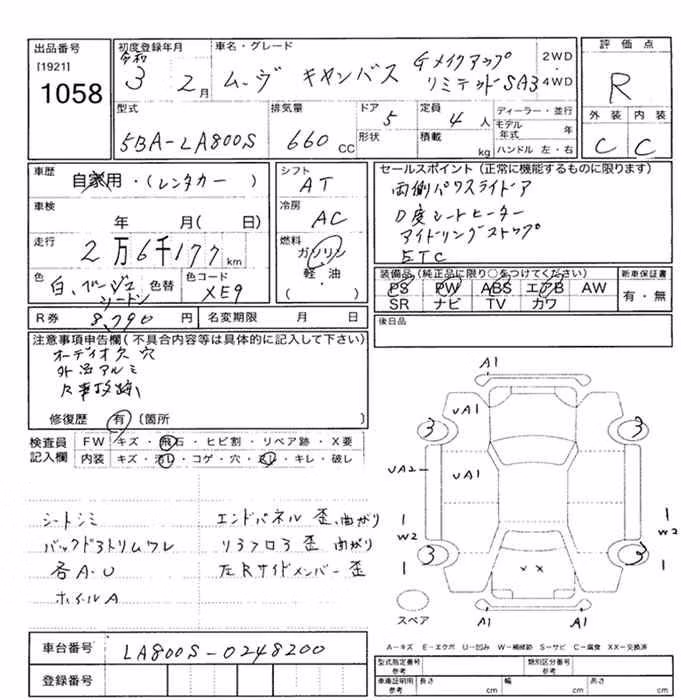 出品番号
[1921]
1058
初度登録年月
令和
3 2月
車名・グレード
ムーヴ キャンバス
Gメイクアップ
リミテッドSA3
2WD
・
4WD
評価点
R
外装 内装
C C
型式
5BA-LA800S
排気量
660 CC
ドア 5
形状
定員
4人
積載
kg
ディーラー・並行
モデル年式 年
ハンドル 左・右
車歴
自家用・(レンタカー)
車検
年 月( 日)
走行
2万6千177km
色
白、ベージュ
色替
色コード
XE9
シフト
AT
冷房
AC
燃料
ガソリン
軽・油
( )
セールスポイント(正常に機能するものに限ります)
両側パワスライドア
シートヒーター
アイドリングストップ
ETC
装備品(純正品に限り○をつけてください)
PS PW ABS エアB AW
SR ナビ TV カワ
新車保証書
有・無
R券 8,790円
名変期限 月 日
後日品
注意事項申告欄(不具合内容等は具体的に記入して下さい)
オーディオ欠 穴
アルミ
修復歴 有 〔箇所 〕
検査員記入欄
FW キズ・飛石・ヒビ割・リペア跡・X要
内装 キズ・汚レ・コゲ・穴・スレ・キレ・破レ
シートシミ
バックドアトリムワレ
各A・U
ホイールA
エンドパネル 歪、曲がり
リアフロア 歪 曲がり
左Rサイドメンバー 歪
A1
UA1
3 3
UA2
UA1
W2
W2
3 3
××
スペア
A1 A1
A-キズ E-エクボ U-凹み W-補修跡 S-サビ C-腐食 XX-交換済
車台番号
LA800S-0248200
登録番号
型式指定番号
参考
類別区分番号
参考
車庫証明用
参考
長さ cm
幅 cm
高さ cm